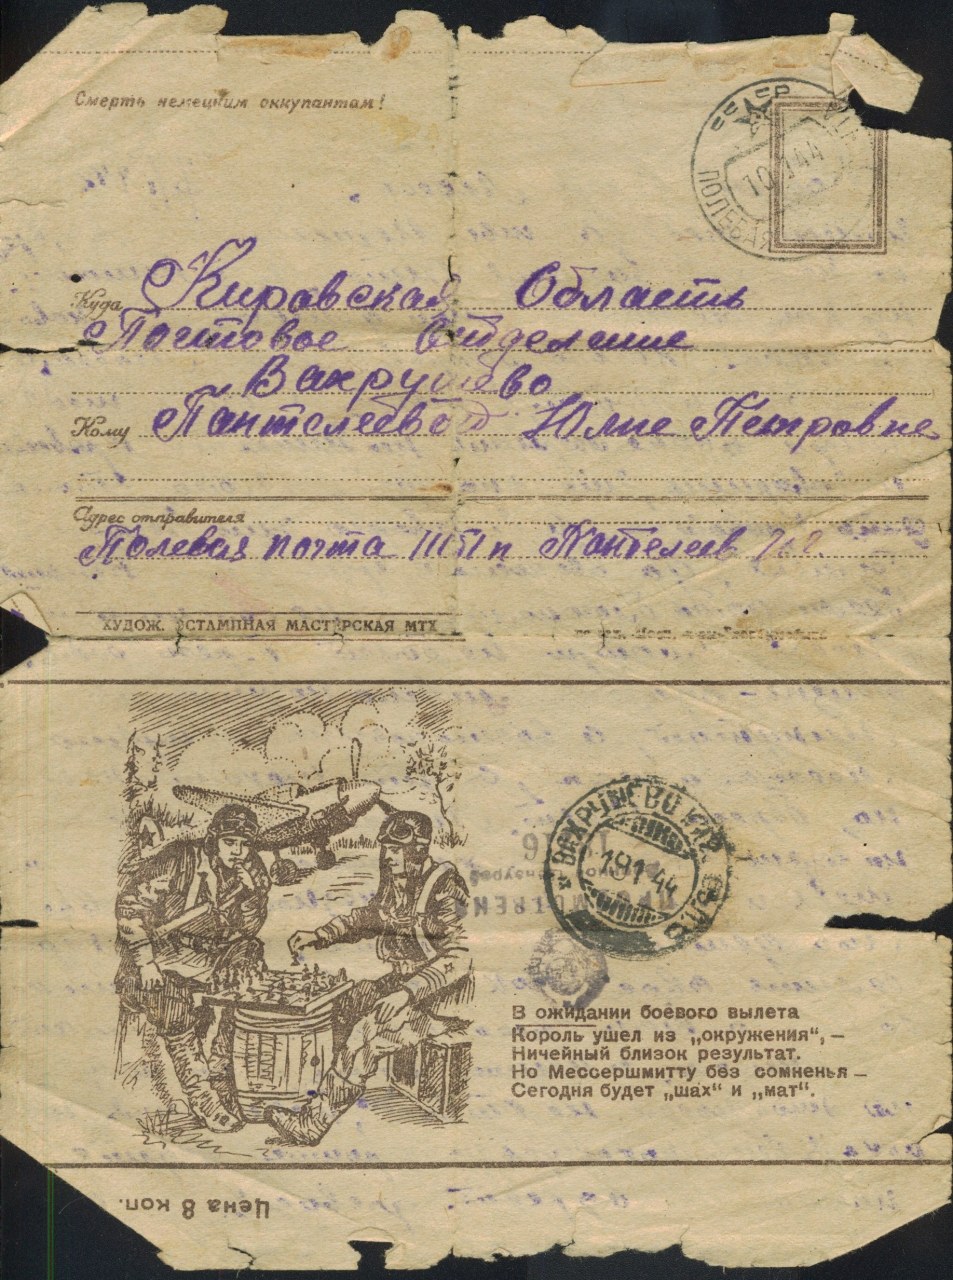 Смерть немецким оккупантам!
СССР
ПОЛЕВАЯ
10 1 44
Куда Кировская Область
Почтовое Отделение
Вахрушево
Кому Пантелеевой Юлие Петровне
Адрес отправителя
Полевая почта Пантелеев
ХУДОЖ. ЭСТАМПНАЯ МАСТЕРСКАЯ МТХ
ВАХРУШЕВО КИР.
19 1 44
В ожидании боевого вылета
Король ушел из „окружения“, —
Ничейный близок результат.
Но Мессершмитту без сомненья —
Сегодня будет „шах“ и „мат“.
Цена 8 коп.